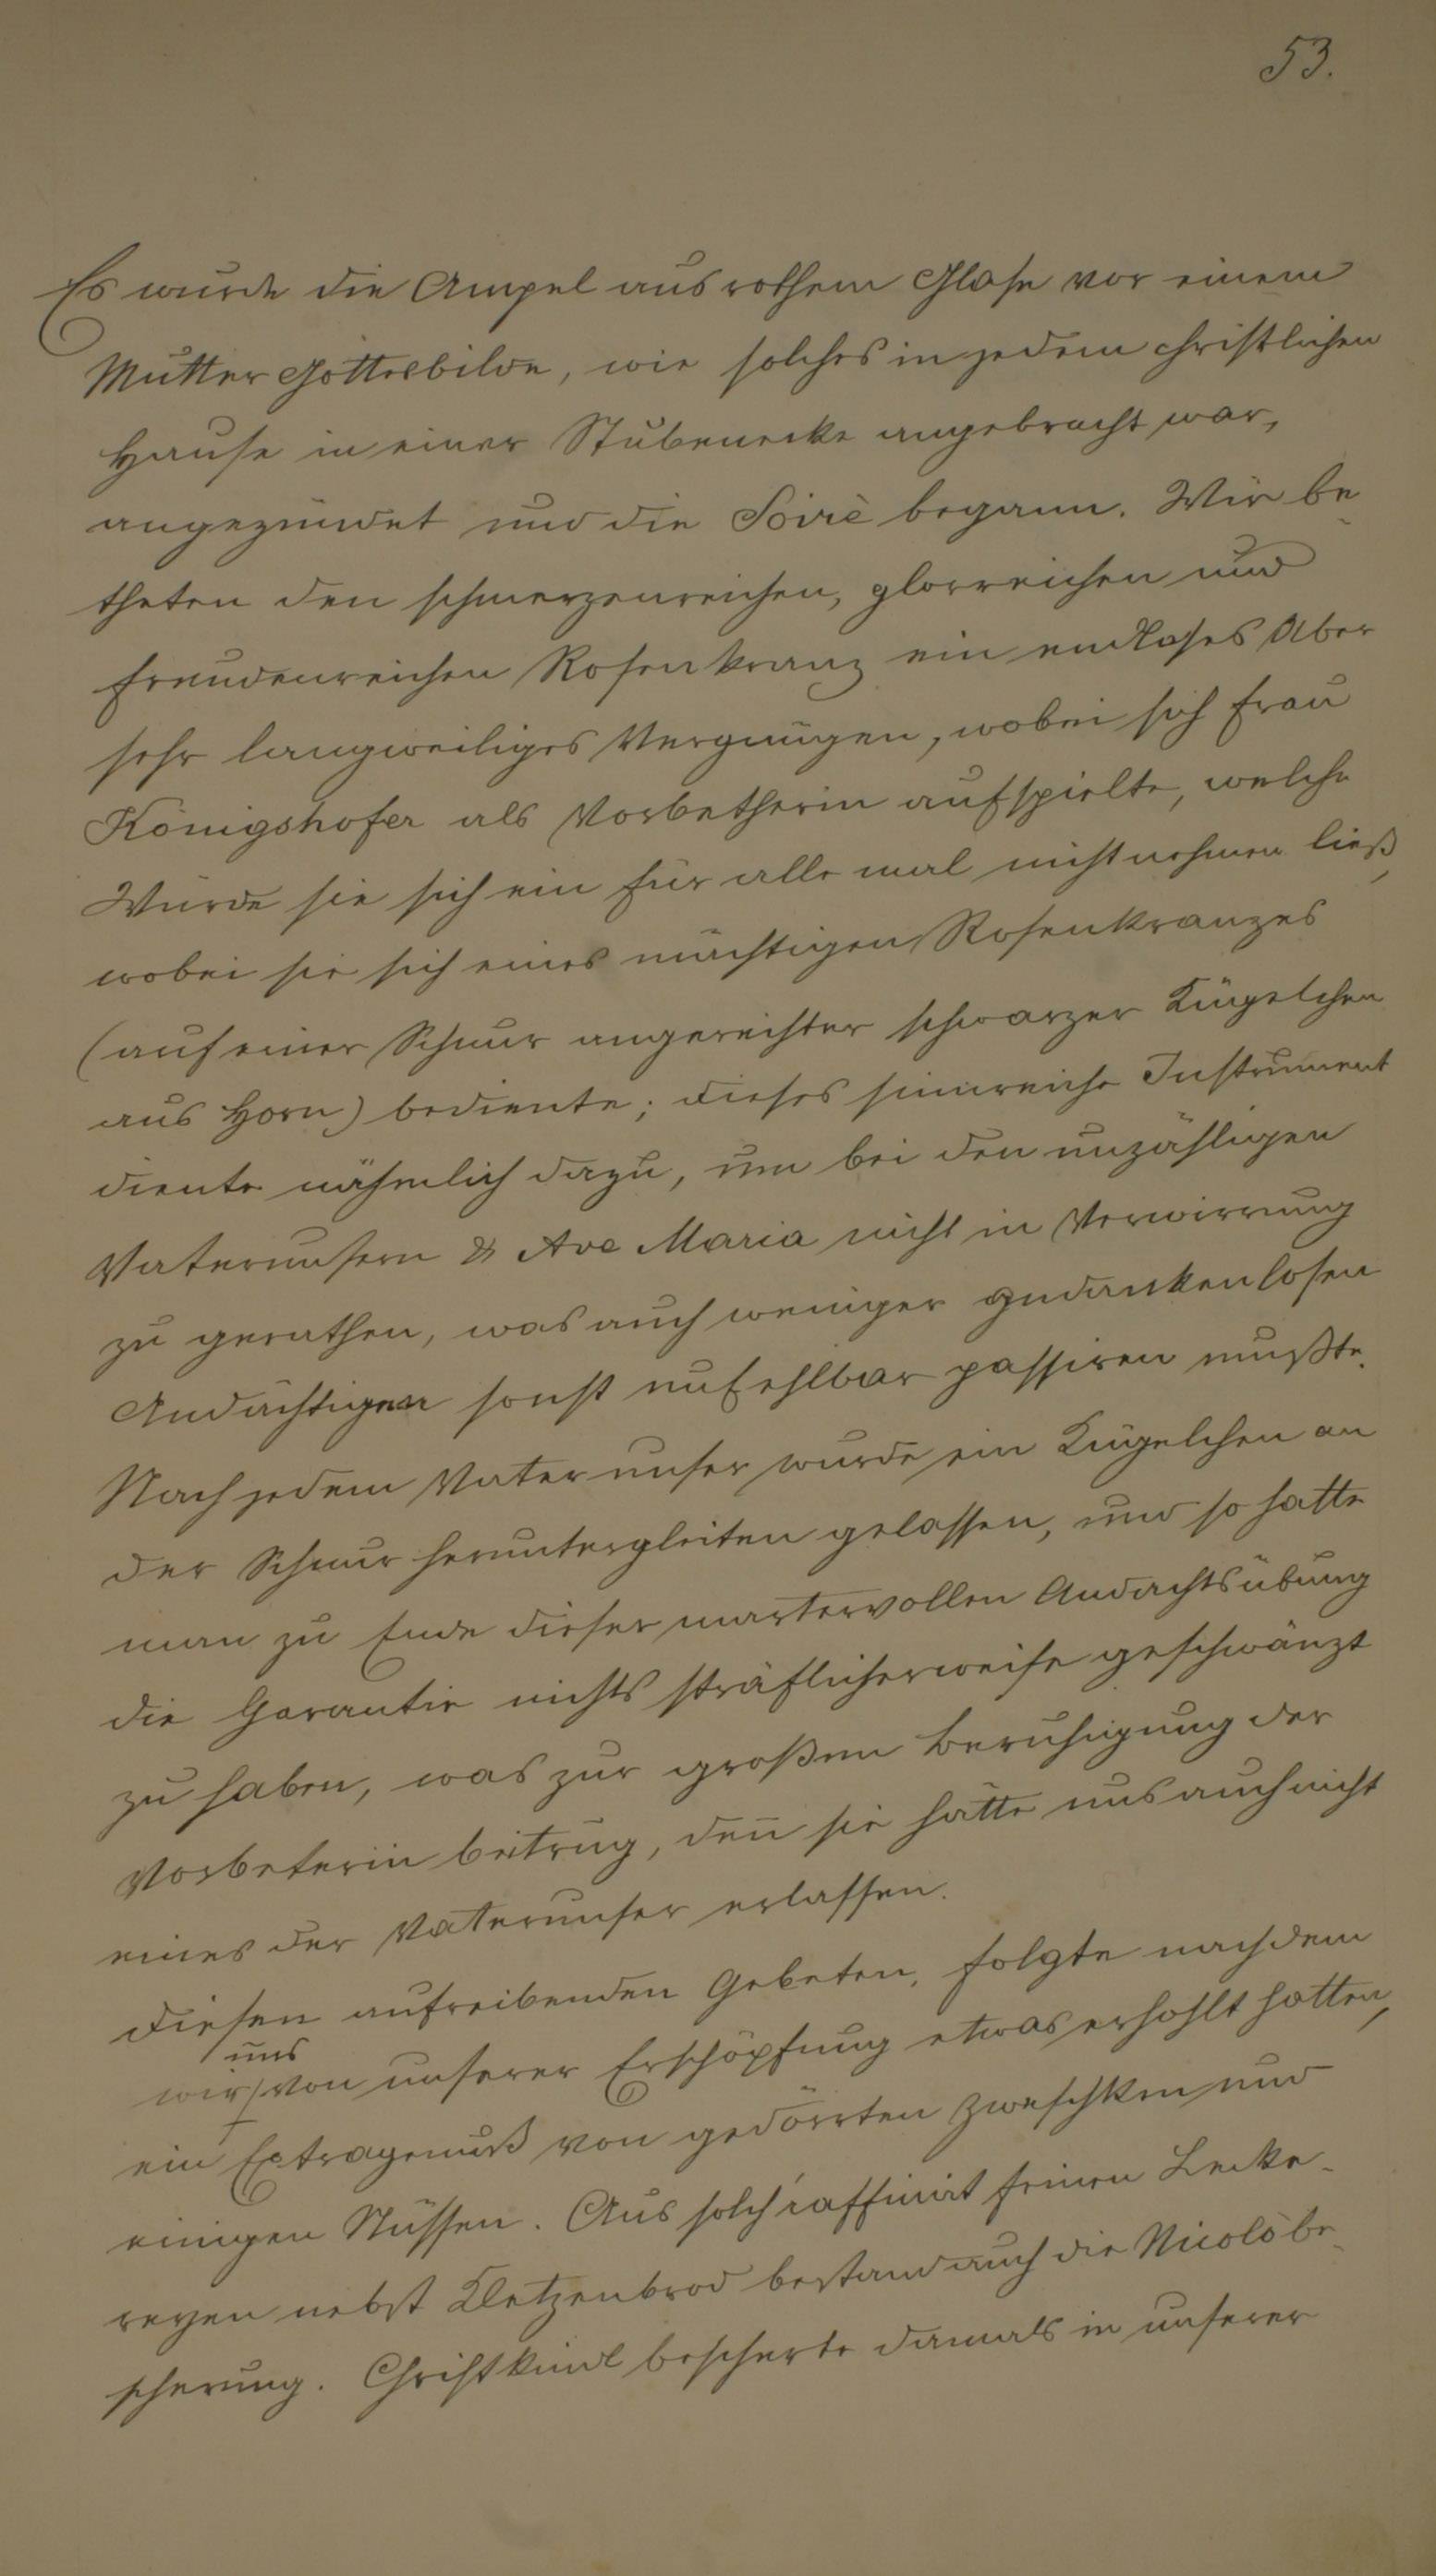 53.
Es wurde die Ampel aus rothem Glase vor einem
Mutter Gottesbilde, wie solches in jedem christlichen
Hause in einer Stubenecke angebracht war,
angezündet und die Soirè begann. Wir be
theten den schmerzenreichen, glorreichen und
freudenreichen Rosenkranz ein endloses Aber
sehr langweiliges Vergnügen, wobei sich Frau
Königshofer als Vorbetherin aufspielte, welche
Würde sie sich ein für alle mal nicht nehmen ließ,
wobei sie sich eines mächtigen Rosenkranzes
(auf einer Schnur angereihter schwarzer Kügelchen
aus Horn) bediente; dieses sinnreiche Instrument
diente nähmlich dazu, um bei den unzähligen
Vaterunsern & Ave Maria nicht in Verwirrung
zu gerathen, was auch weniger gedankenlosen
Andächtigen sonst unfehlbar passiren mußte.
Nach jedem Vater unser wurde ein Kügelchen an
der Schnur heruntergleiten gelassen, und so hatte
man zu Ende dieser martervollen Andachtsübung
die Garantie nichts sträflicherweise geschwänzt
zu haben, was zur großen Beruhigung der
Vorbeterin beitrug, den̄ sie hätte uns auch nicht
eines der Vaterunser erlassen.
Diesen aufreibenden Gebeten, folgte nachdem
uns
wir von unserer Erschöpfung etwas erhohlt hatten,
ein Extragenuß von gedörrten Zweschken und
einigen Nüssen. Aus solch raffinirt feinen Lecke-
reyen nebst Kletzenbrod bestand auch die Nicolòbe-
scherung. Christkindl bescherte damals in unserer